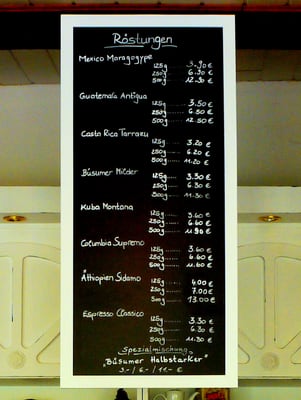 Röstungen
Mexico Maragogype
125g ...... 3.90 €
250g ...... 6.30 €
500g ...... 12.30 €
Guatemala Antigua
125g ...... 3.50 €
250g ...... 6.50 €
500g ...... 12.50 €
Costa Rica Tarrazu
125g ...... 3.20 €
250g ...... 6.20 €
500g ...... 11.20 €
Büsumer Milder
125g ...... 3.30 €
250g ...... 6.30 €
500g ...... 11.30 €
Kuba Montana
125g ...... 3.60 €
250g ...... 6.60 €
500g ...... 11.90 €
Columbia Supremo
125g ...... 3.60 €
250g ...... 6.60 €
500g ...... 11.60 €
Äthiopien Sidamo
125g ...... 4.00 €
250g ...... 7.00 €
500g ...... 13.00 €
Espresso Classico
125g ...... 3.30 €
250g ...... 6.30 €
500g ...... 11.30 €
Spezialmischung
"Büsumer Halbstarker"
3.-/6.-/11.- €